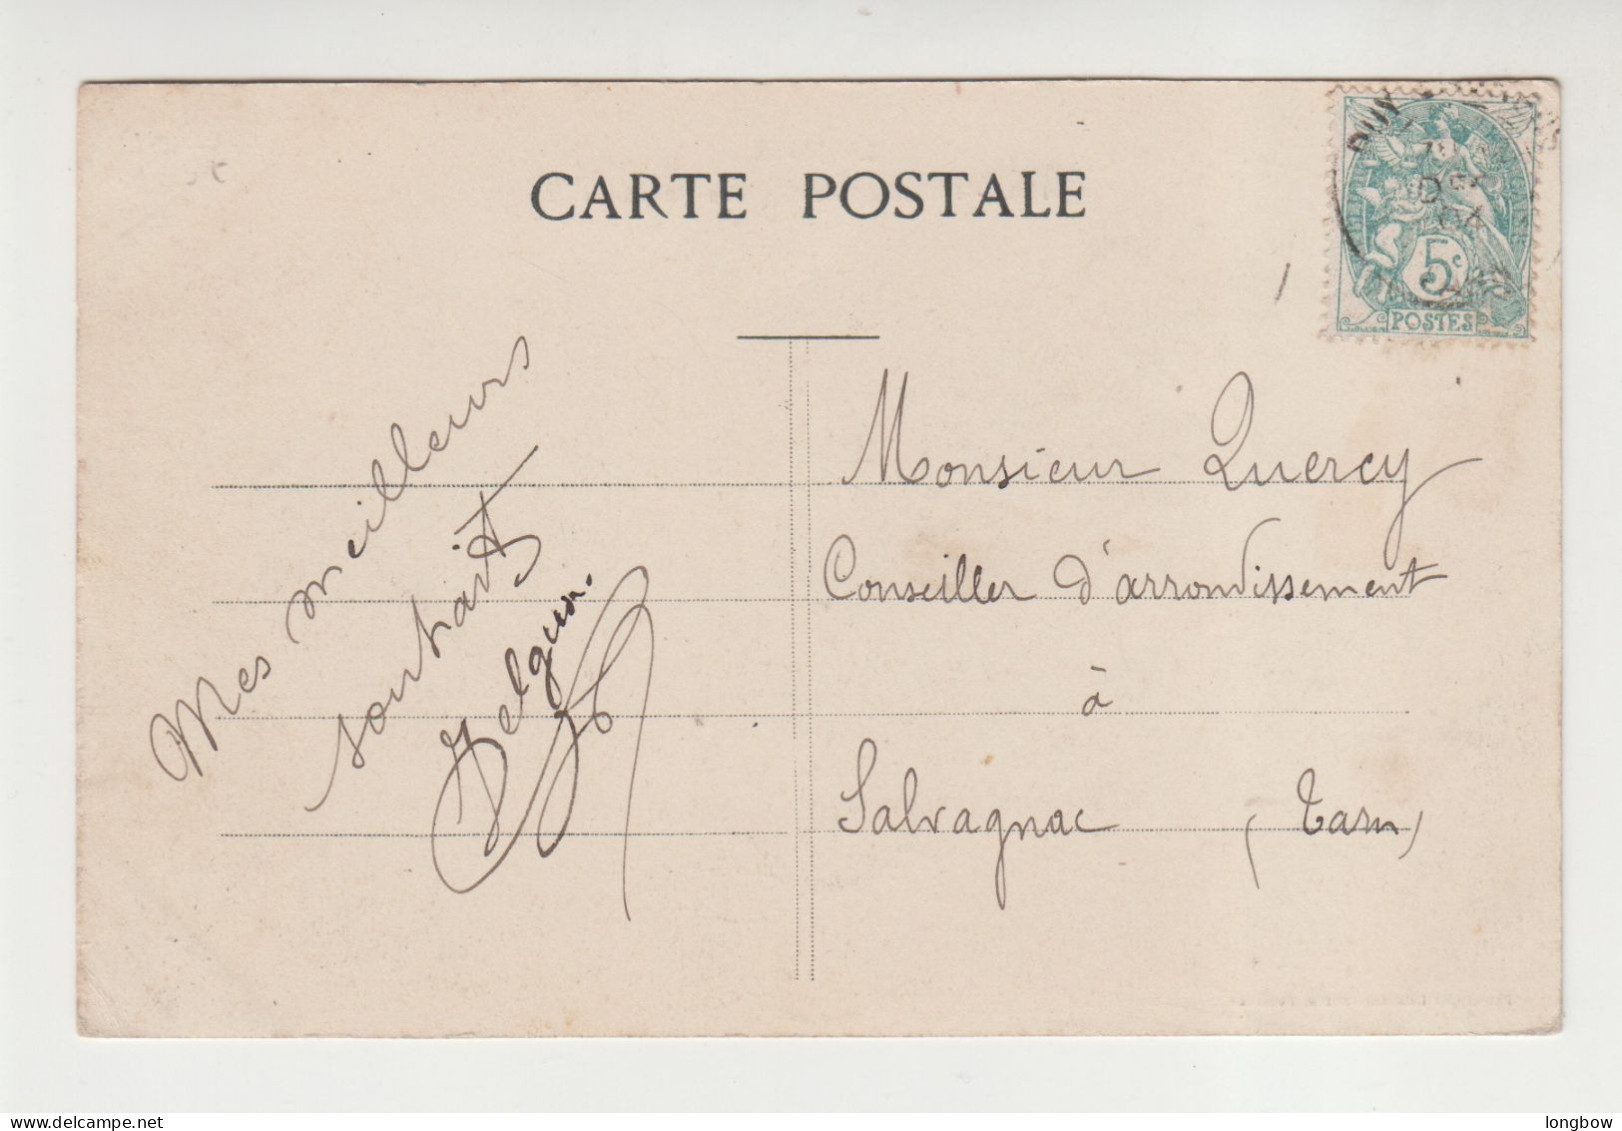 CARTE POSTALE
5c
POSTES
Mes meilleurs
souhaits
Delguin.
Monsieur Quercy
Conseiller d'arrondissement
à
Salvagnac (Tarn)
longbow